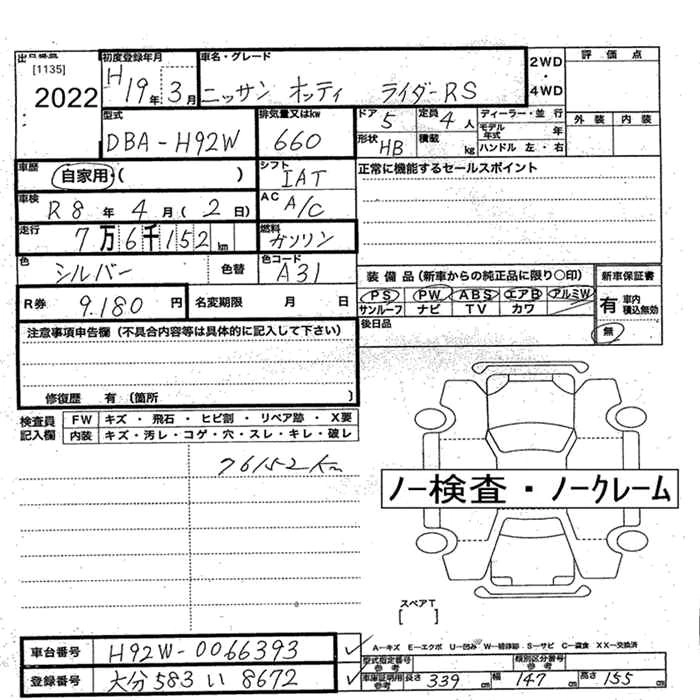 出品番号
[1135]
2022
初度登録年月
H19年3月
車名・グレード
ニッサン オッティ ライダーRS
2WD
・
4WD
評価点
外装 内装
型式
DBA-H92W
排気量又はkw
660
ドア
5
定員
4人
ディーラー・並行
モデル年式 年
ハンドル 左・右
形状
HB
積載 kg
車歴
自家用・( )
シフト
IAT
正常に機能するセールスポイント
車検
R8年4月(2日)
AC
A/C
走行
7万6千152km
燃料
ガソリン
色
シルバー 色替
色コード
A31
装備品(新車からの純正品に限り○印)
新車保証書
PS PW ABS エアB アルミW
サンルーフ ナビ TV カワ
有 車内積込無効
無
後日品
R券 9.180円
名変期限 月 日
注意事項申告欄(不具合内容等は具体的に記入して下さい)
修復歴 有(箇所 )
検査員記入欄
FW キズ・飛石・ヒビ割・リペア跡・X要
内装 キズ・汚レ・コゲ・穴・スレ・キレ・破レ
76152Km
ノー検査・ノークレーム
スペアT
[ ]
A―キズ E―エクボ U―凹み W―補修跡 S―サビ C―腐食 XX―交換済
車台番号 H92W-0066393
型式指定番号参考
類別区分番号参考
登録番号 大分 583 い 8672
車庫証明用参考 長さ 339cm 幅 147cm 高さ 155cm